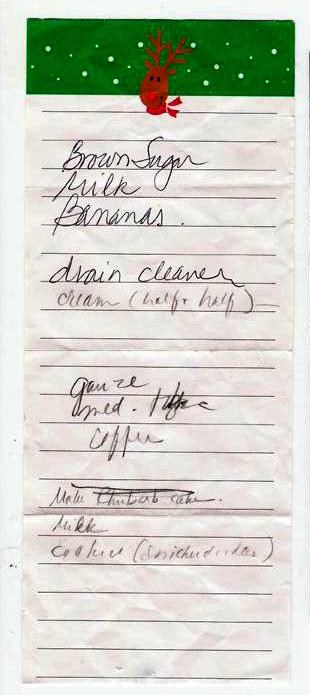 Brown Sugar
Milk
Bananas.
drain cleaner
cream (half + half)
gauze
med. tape
coffee
Make Rhubarb cake.
Milk
cookies (Snickerdoodles)